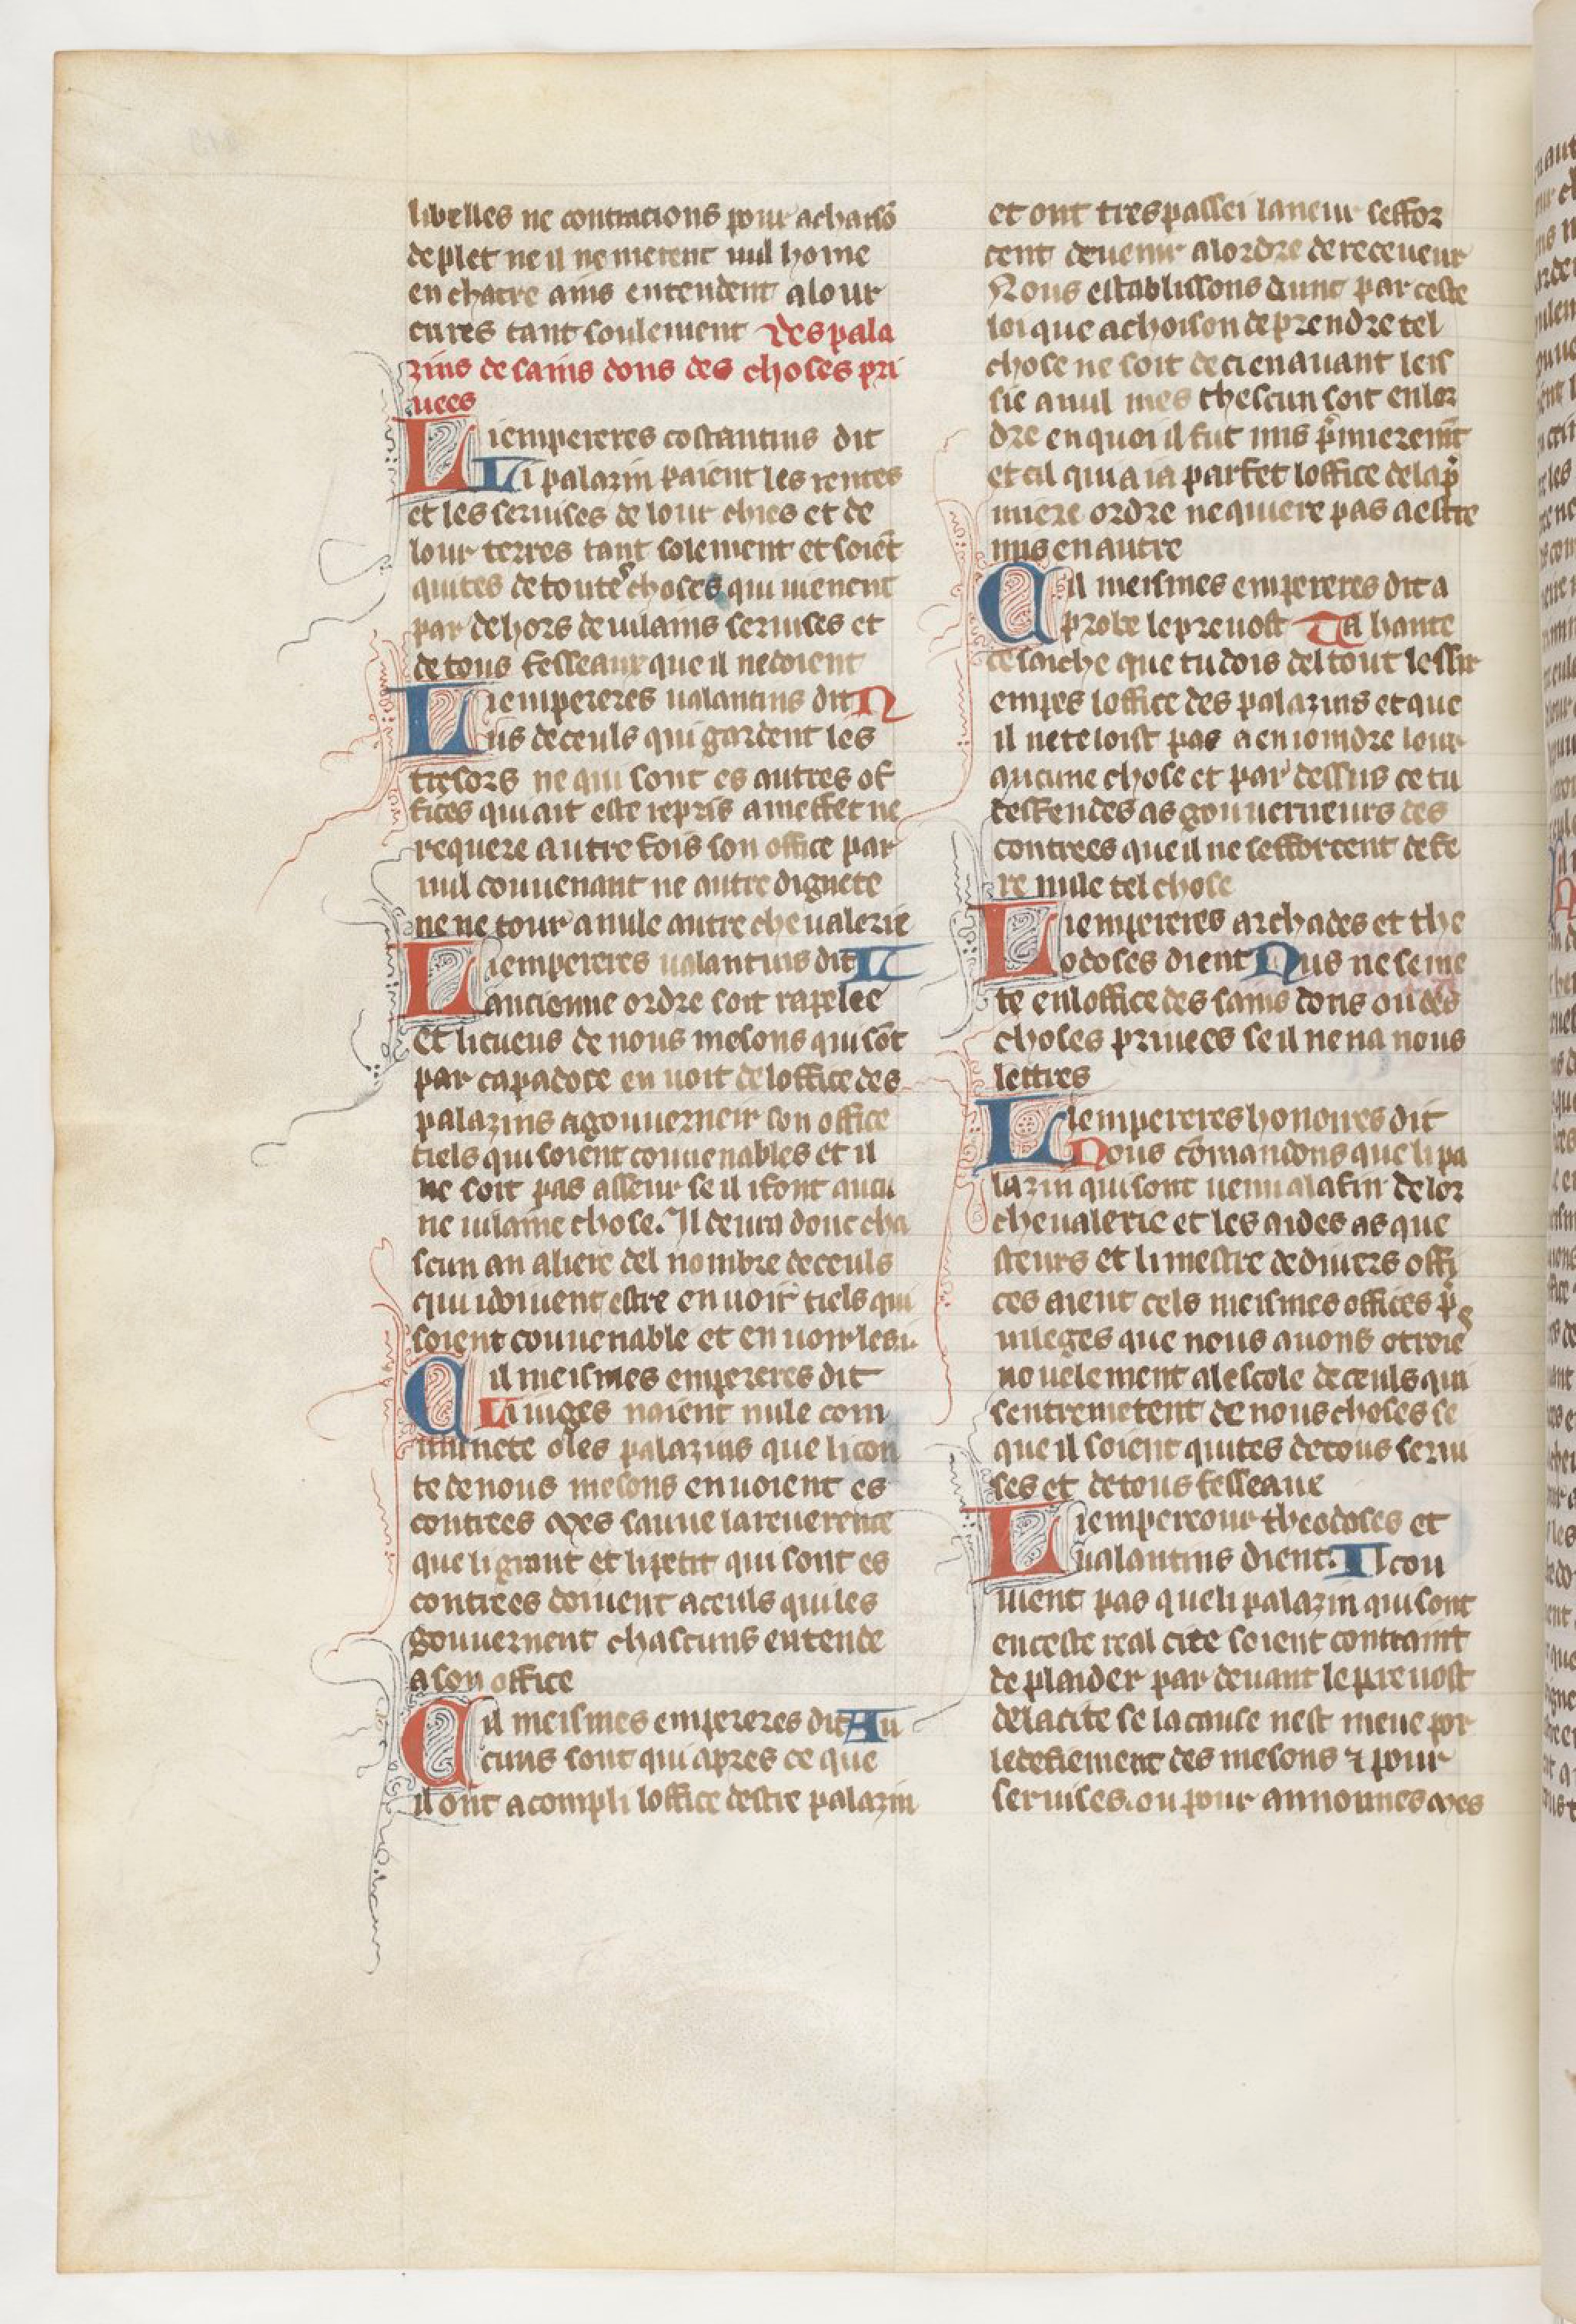 libelles ne contracions pour achaisõ
de plet ne il ne metent nul home
en chatre ains entendent a lour
cures tant soulement Des pala
zins de sains dons des choses pri
uees
Li empereres costantins dit
Li palazin paient les rentes
et les seruises de lour chies et de
lour terres tant solement et soiẽt
quites de toutes choses qui uienent
par dehors de uilains seruises et
de tous fesseaux que il ne doient
Li empereres ualantins dit N
us de ceuls qui gardent les
tresors ne qui sont es autres of
fices qui ait este repris a meffet ne
requere autre fois son office par
nul couuenant ne autre dignete
ne ne tour a nule autre cheualerie
Li empereres ualantins dit L
ancienne ordre soit rapelee
et li cueus de nous mesons qui sõt
par capadoce en uoit de loffice des
palazins a gouuerneir son office
tiels qui soient couuenables et il
ne soit pas asseur se il i font aucu
ne uilaine chose. Il deura donc cha
scun an aliere del nombre de ceuls
qui i doiuent estre en uoir tiels qui
soient couuenable et en uoir les i
Cil meismes empereres dit
Li iuges naient nule com
munete o les palazins que li con
te de nous mesons enuoient es
contrees Mes sauue la reuerence
que li grant et li petit qui sont es
contrees doiuent a ceuls qui les
gouuernent chascuns entende
a son office
Cil meismes empereres dit Au
cuns sont qui apres ce que
il ont acompli loffice destre palazin
et ont trespassei laneur seffor
cent deuenir a lordre de receueur
Nous establissons dunc par ceste
loi que achoison de prendre tel
chose ne soit de ci en auant leis
sie a nul mes chescun soit en lor
dre en quoi il fut mis p̃mieremt
et cil qui a ia parfet loffice de la p̃
miere ordre ne quiere pas a estre
mis en autre
Cil meismes empereres dit a
probe le preuost Ta haute
ce saiche que tu dois del tout lessir
empes loffice des palazins et que
il ne te loist pas a enioindre lour
aucune chose et par dessus ce tu
deffendes as gouuerneurs des
contrees que il ne seffortcent de fe
re nule tel chose
Li empereres archades et the
odoses dient Nus ne se me
te en loffice des sains dons ou des
choses priuees se il nen a nous
lettres
Li empereres honoires dit
Nous cõmandons que li pa
lazin qui sont uenu a la fin de lor
cheualerie et les aides as que
steurs et li mestre de diuers offi
ces aient cels meismes offices p̃
uileges que nous auons otroie
nouelement a lescole de ceuls qui
sentremetent de nous choses se
que il soient quites de tous serui
ses et de tous fesseaue
Li empereour theodoses et
ualantins dient. Il cou
uient pas que li palazin qui sont
en ceste real cite soient contraint
de plaider par deuant le preuost
de la cite se la cause nest meue por
le defiement des mesons ⁊ pour
seruises. ou pour annonnes Mes